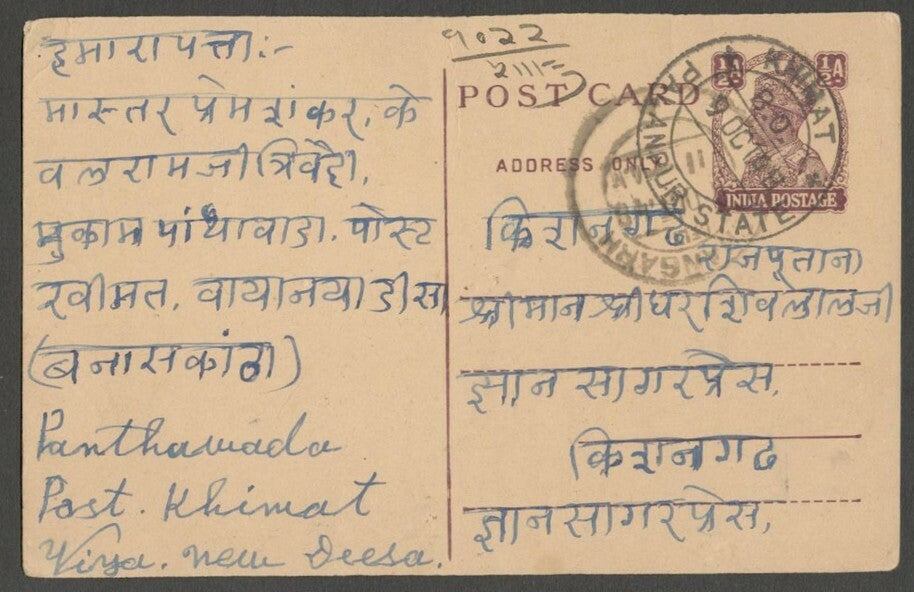 हमारा पत्ता:-
मास्तर प्रेमशंकर, के
वलरामजी त्रिवेदी,
मुकाम पांथावाडा. पोस्ट
खीमत, वाया नया डीसा
(बनासकांठा)
Panthawada
Post. Khimat
Viya. new Deesa.
१०२२
POST CARD
ADDRESS ONLY
½A ½A
INDIA POSTAGE
KHIMAT
PALANPUR STATE
9 OCT
किशनगढ
राजपूताना
श्रीमान श्रीधर शिवलालजी
ज्ञान सागर प्रेस,
किशनगढ
ज्ञानसागर प्रेस,